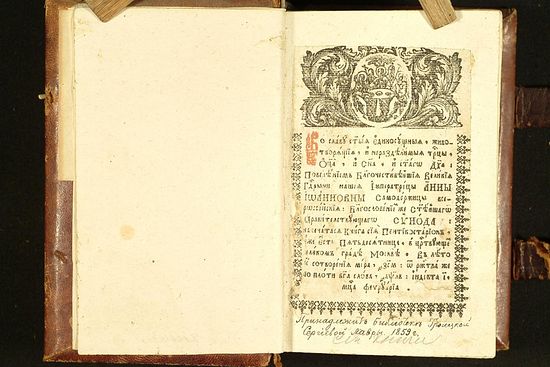 Во славу ст҃ыѧ є҆диносꙋщныѧ, живо-
творѧщїѧ, и҆ нераздѣлимыѧ трⷪ҇цы,
Ѻ҆ц҃а̀, и҆ сн҃а, и҆ ст҃агѡ дх҃а:
Повелѣнїемъ Благочестивѣйшїѧ Великїѧ
Гдⷭ҇рыни нашеѧ І҆мператрицы АННЫ
ІѠАННОВНЫ Самодержицы все-
рѡссїйскїѧ: Благословенїемже Ст҃ѣйшагѡ
Правителствꙋющагѡ СѴНОДА:
напечатасѧ Книга сїѧ Пентикостарїонъ,
є҆же є҆сть Пѧтьдесѧтница, в̾ царствꙋющемъ
великомъ градѣ Москвѣ. Въ лѣто
ѿ сотворенїѧ мїра, ѿ рж҃тва же
по плоти бг҃а слова, і҆ндїкта
мцⷭ҇а феврꙋарїа.
Принадлежитъ библіотекѣ Троицкой
Сергіевой Лавры. 1859 г.